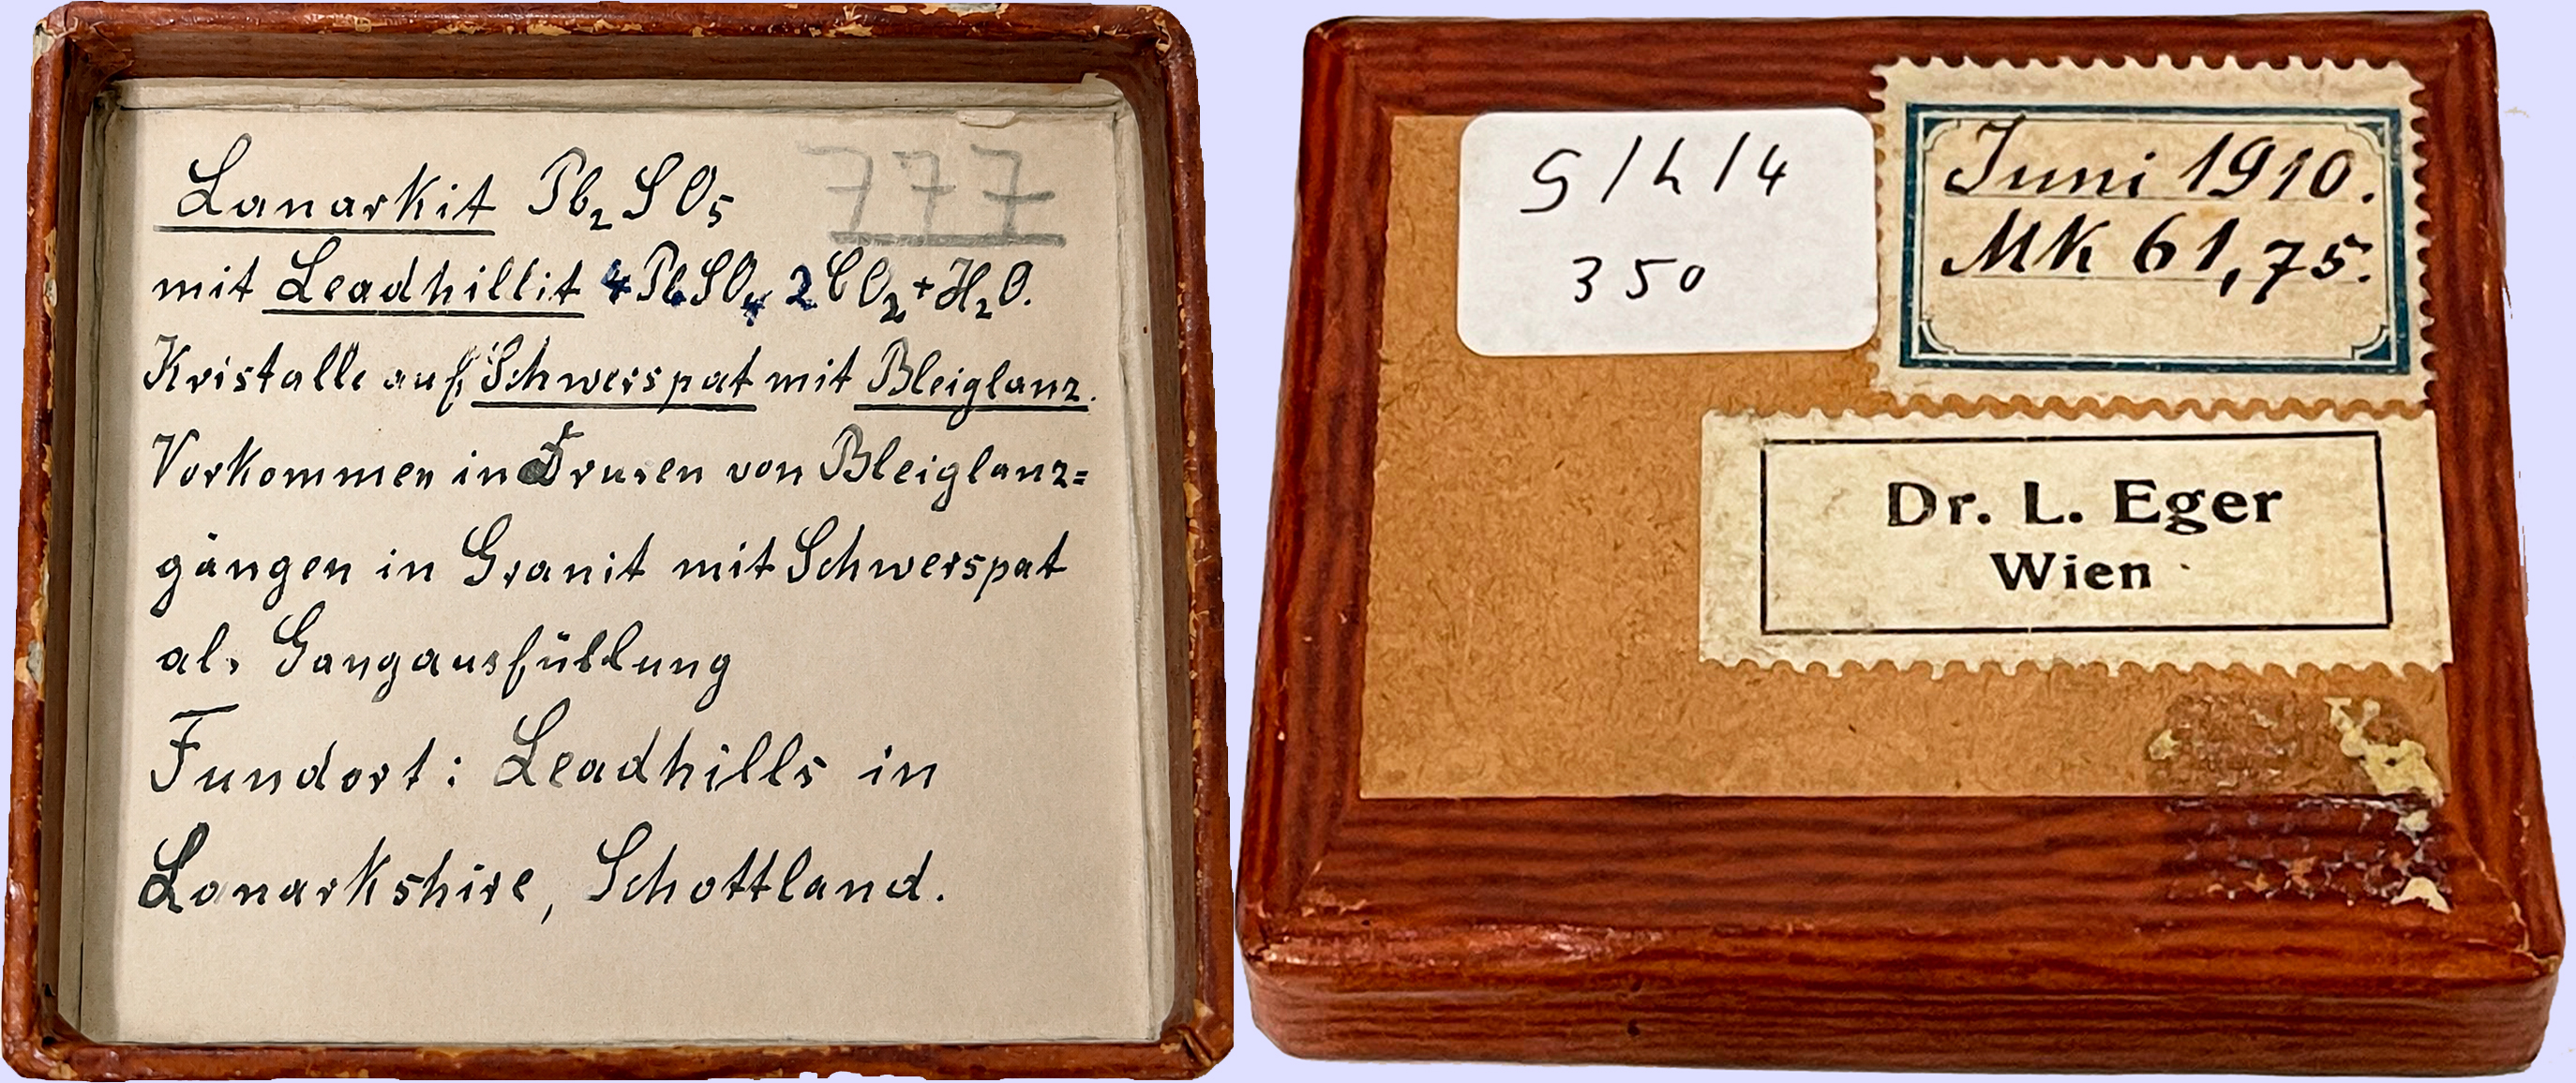 Lanarkit Pb₂SO₅ 777
mit Leadhillit 4PbSO₄ 2CO₂+H₂O.
Kristalle auf Schwerspat mit Bleiglanz.
Vorkommen in Drusen von Bleiglanz=
gängen in Granit mit Schwerspat
als Gangausfüllung
Fundort: Leadhills in
Lanarkshire, Schottland.
S/h/4
350
Juni 1910.
Mk 61,75.
Dr. L. Eger
Wien